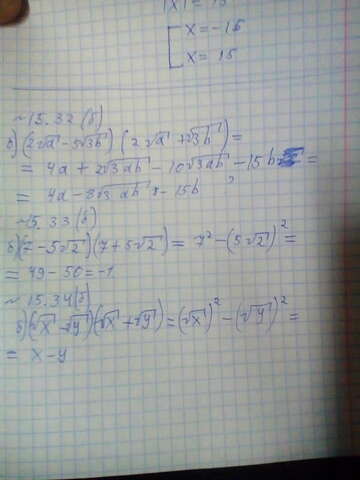 |x| = 15
[ x = -15
x = 15
~15.32 (б)
б) (2√a - 5√3b) (2√a + √3b) =
= 4a + 2√3ab - 10√3ab - 15b =
= 4a - 8√3ab - 15b
~15.33 (б)
б) (7 - 5√2) (7 + 5√2) = 7² - (5√2)² =
= 49 - 50 = -1
~15.34 (б)
б) (√x - √y) (√x + √y) = (√x)² - (√y)² =
= x - y